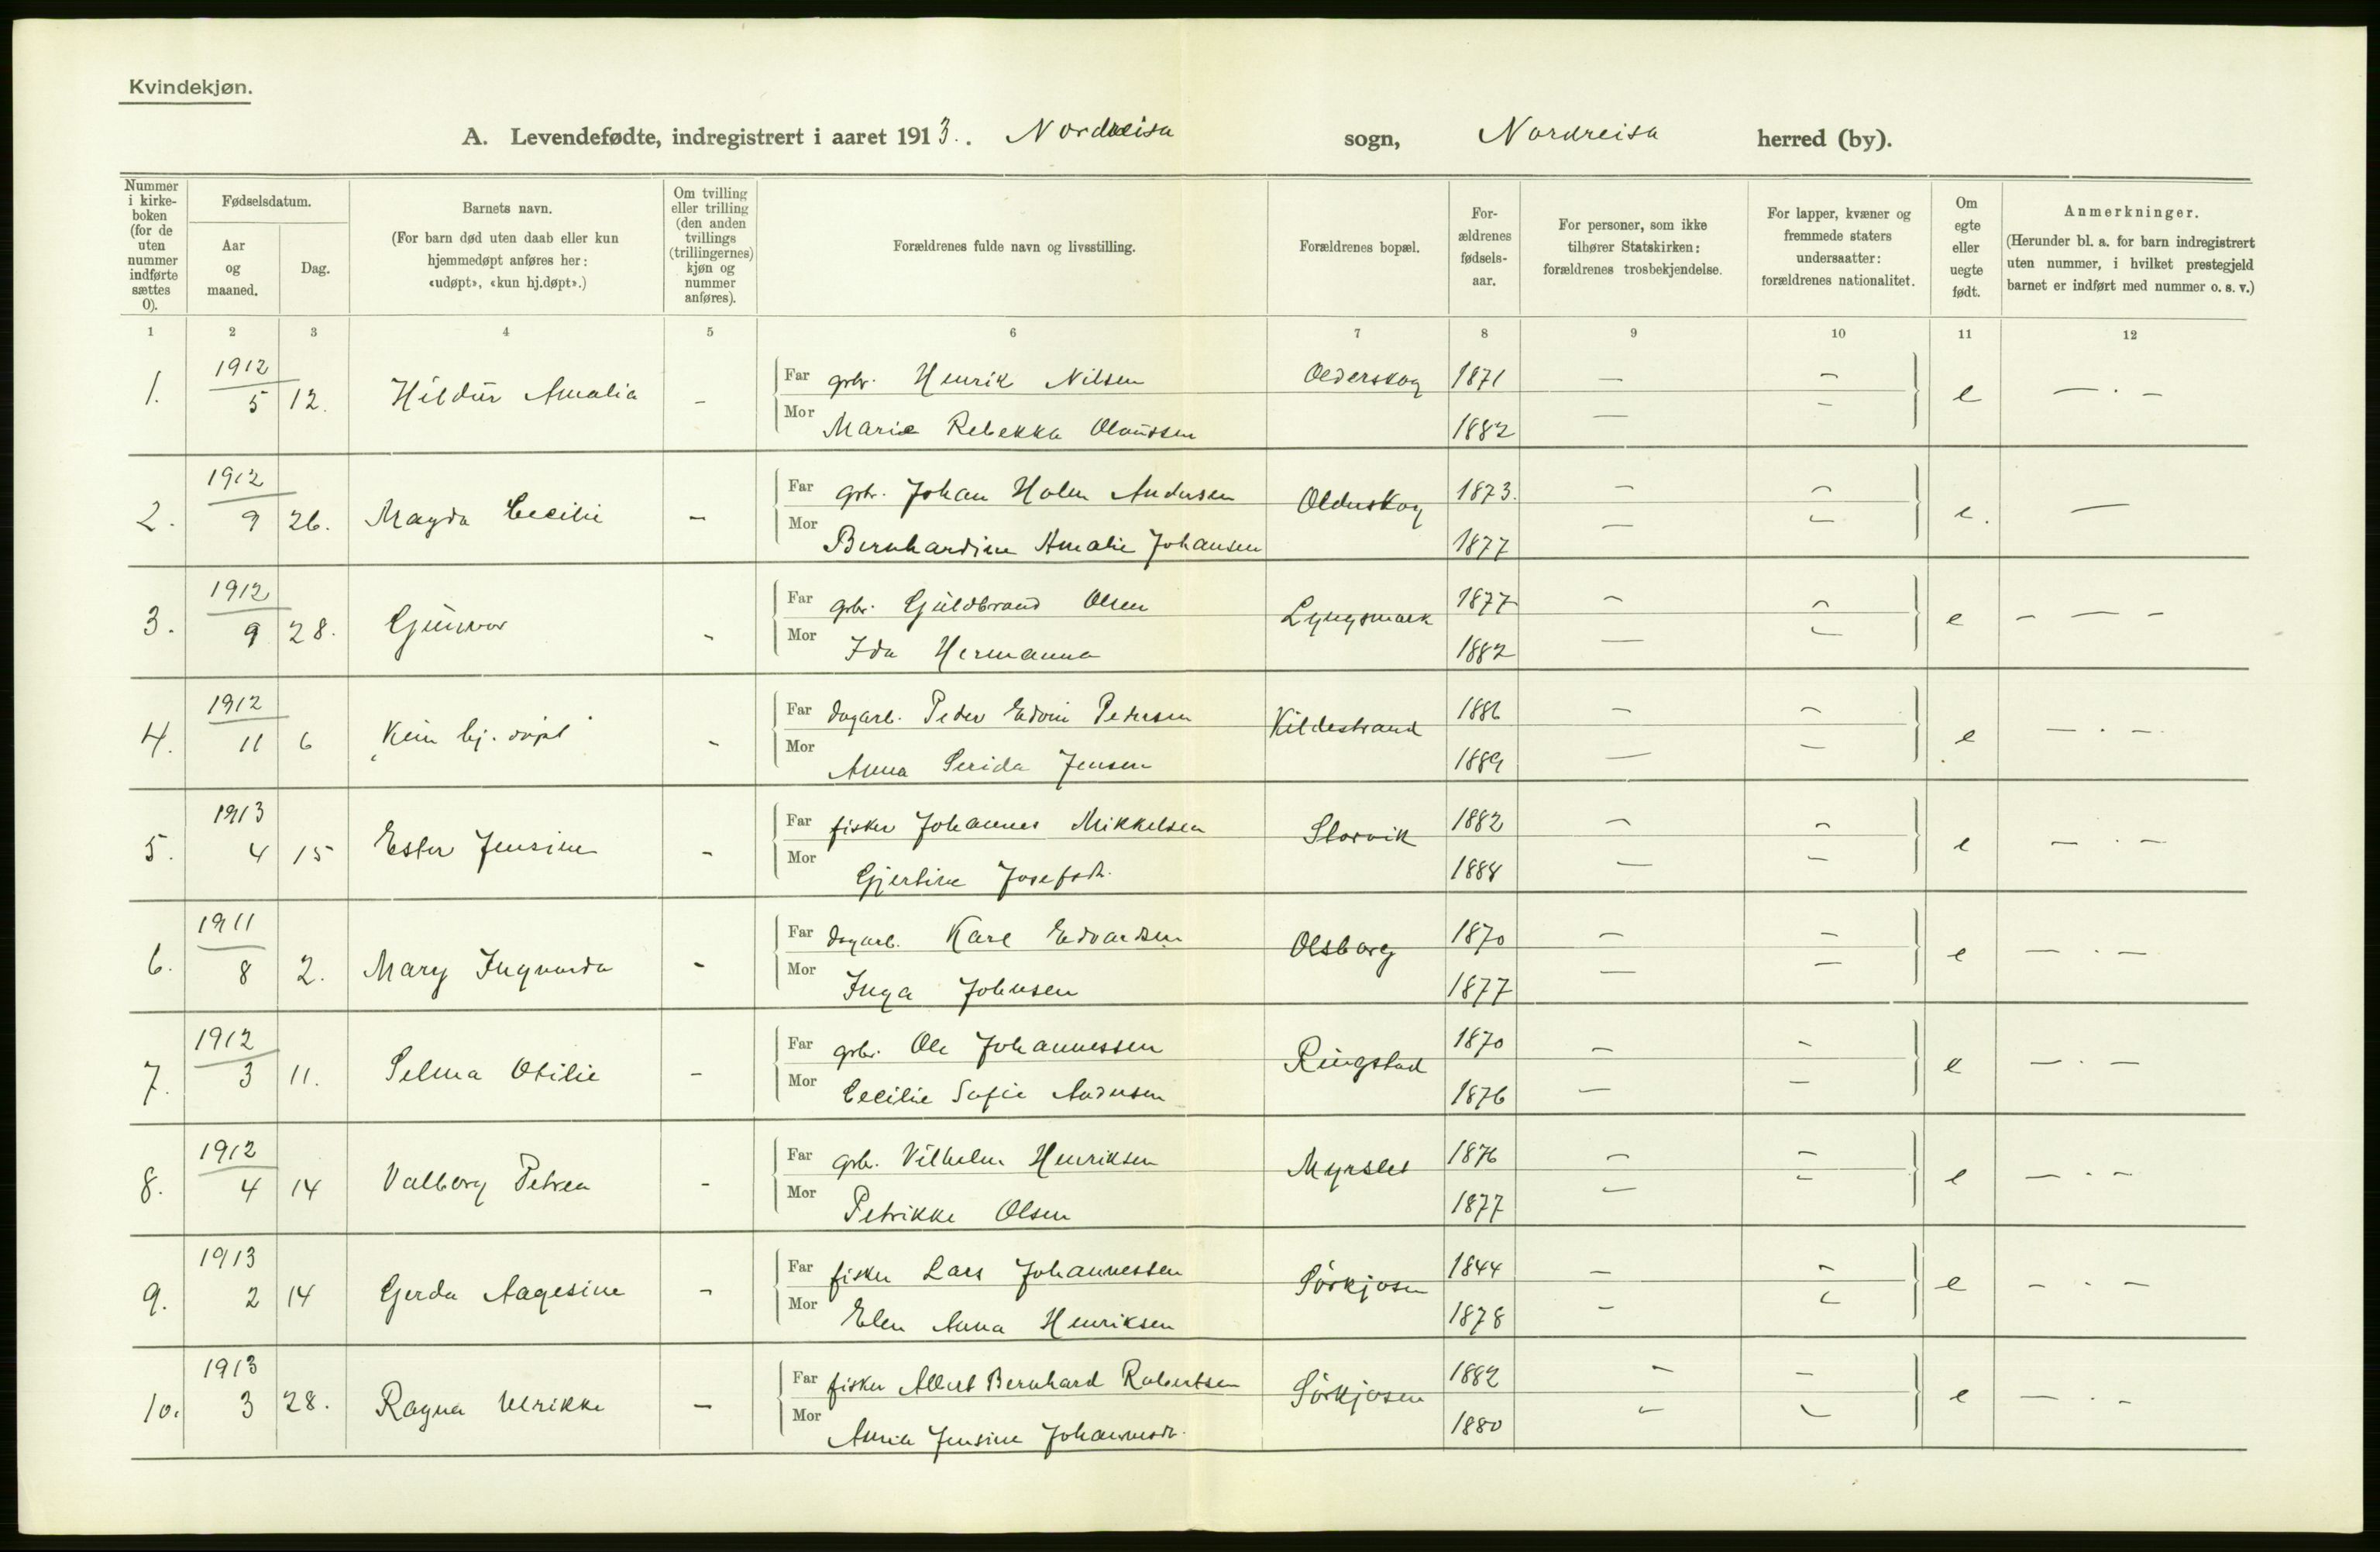 Kvindekjøn.
A. Levendefødte, indregistrert i aaret 1913. . Nordreisa sogn, Nordreisa herred (by).
Nummer i kirke-boken (for de uten nummer indførte sættes 0).
Fødselsdatum.
Aar og maaned.
Dag.
Barnets navn.
(For barn død uten daab eller kun hjemmedøpt anføres her: «udøpt», «kun hj.døpt».)
Om tvilling eller trilling (den anden tvillings (trillingernes) kjøn og nummer anføres).
Forældrenes fulde navn og livsstilling.
Forældrenes bopæl.
For-ældrenes fødsels-aar.
For personer, som ikke tilhører Statskirken: forældrenes trosbekjendelse.
For lapper, kvæner og fremmede staters undersaatter: forældrenes nationalitet.
Om egte eller uegte født.
Anmerkninger.
(Herunder bl. a. for barn indregistrert uten nummer, i hvilket prestegjeld barnet er indført med nummer o. s. v.)
1 2 3 4 5 6 7 8 9 10 11 12
1. 1912 5 12. Hildur Amalia – Far gbr. Henrik Nilsen Olderskog 1871 — – e — . –
Mor Marie Rebekka Olaussen 1882 — –
2. 1912 9 26. Magda Cecilie – Far gbr. Johan Holm Andersen Olderskog 1873. – – e. —
Mor Bernhardine Amalie Johansen 1877 — –
3. 1912 9 28. Gunvor - Far gbr. Guldbrand Olsen Lyngsmark 1877 – – e – — –
Mor Ida Hermanna 1882 — –
4. 1912 11 6 Kun hj. døpt - Far dagarb. Peder Edvin Pedersen Kildestrand 1886 – – e — . –
Mor Anna Serida Jensen 1889 — –
5. 1913 4 15 Ester Jensine - Far fisker Johannes Mikkelsen Storvik 1882 – – e — . –
Mor Gjertine Josefsdt. 1888 — –
6. 1911 8 2. Mary Ingvarda - Far dagarb. Karl Edvardsen Olsborg 1870 – – e — . —
Mor Inga Johnsen 1877 — –
7. 1912 3 11. Selma Otilie – Far gbr. Ole Johannessen Ringstad 1870 – – e — . —
Mor Cecilie Sofie Andersen 1876 — –
8. 1912 4 14 Valborg Petrea - Far gbr. Vilhelm Henriksen Myrslet 1876 – – e — . –
Mor Petrikke Olsen 1877 — –
9. 1913 2 14 Gerda Aagesine - Far fisker Lars Johannessen Sørkjosen 1844 – – e – . –
Mor Elen Anna Henriksen 1878 – –
10. 1913 3 28. Ragna Ulrikke – Far fisker Albert Bernhard Robertsen Sørkjosen 1882 – – e — . –
Mor Jensine Johannesdt. 1880 – –